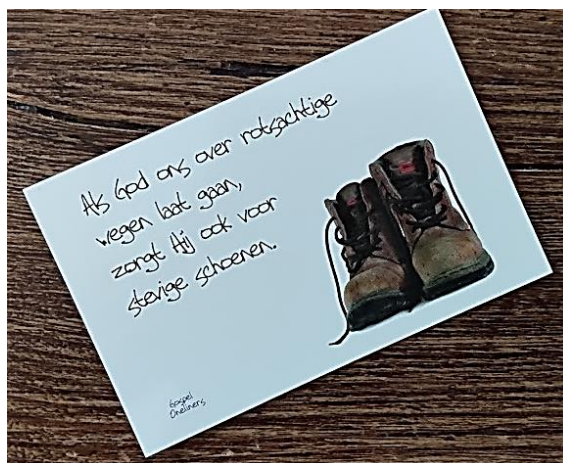 Als God ons over rotsachtige
wegen laat gaan,
zorgt Hij ook voor
stevige schoenen.
Gospel
Oneliners